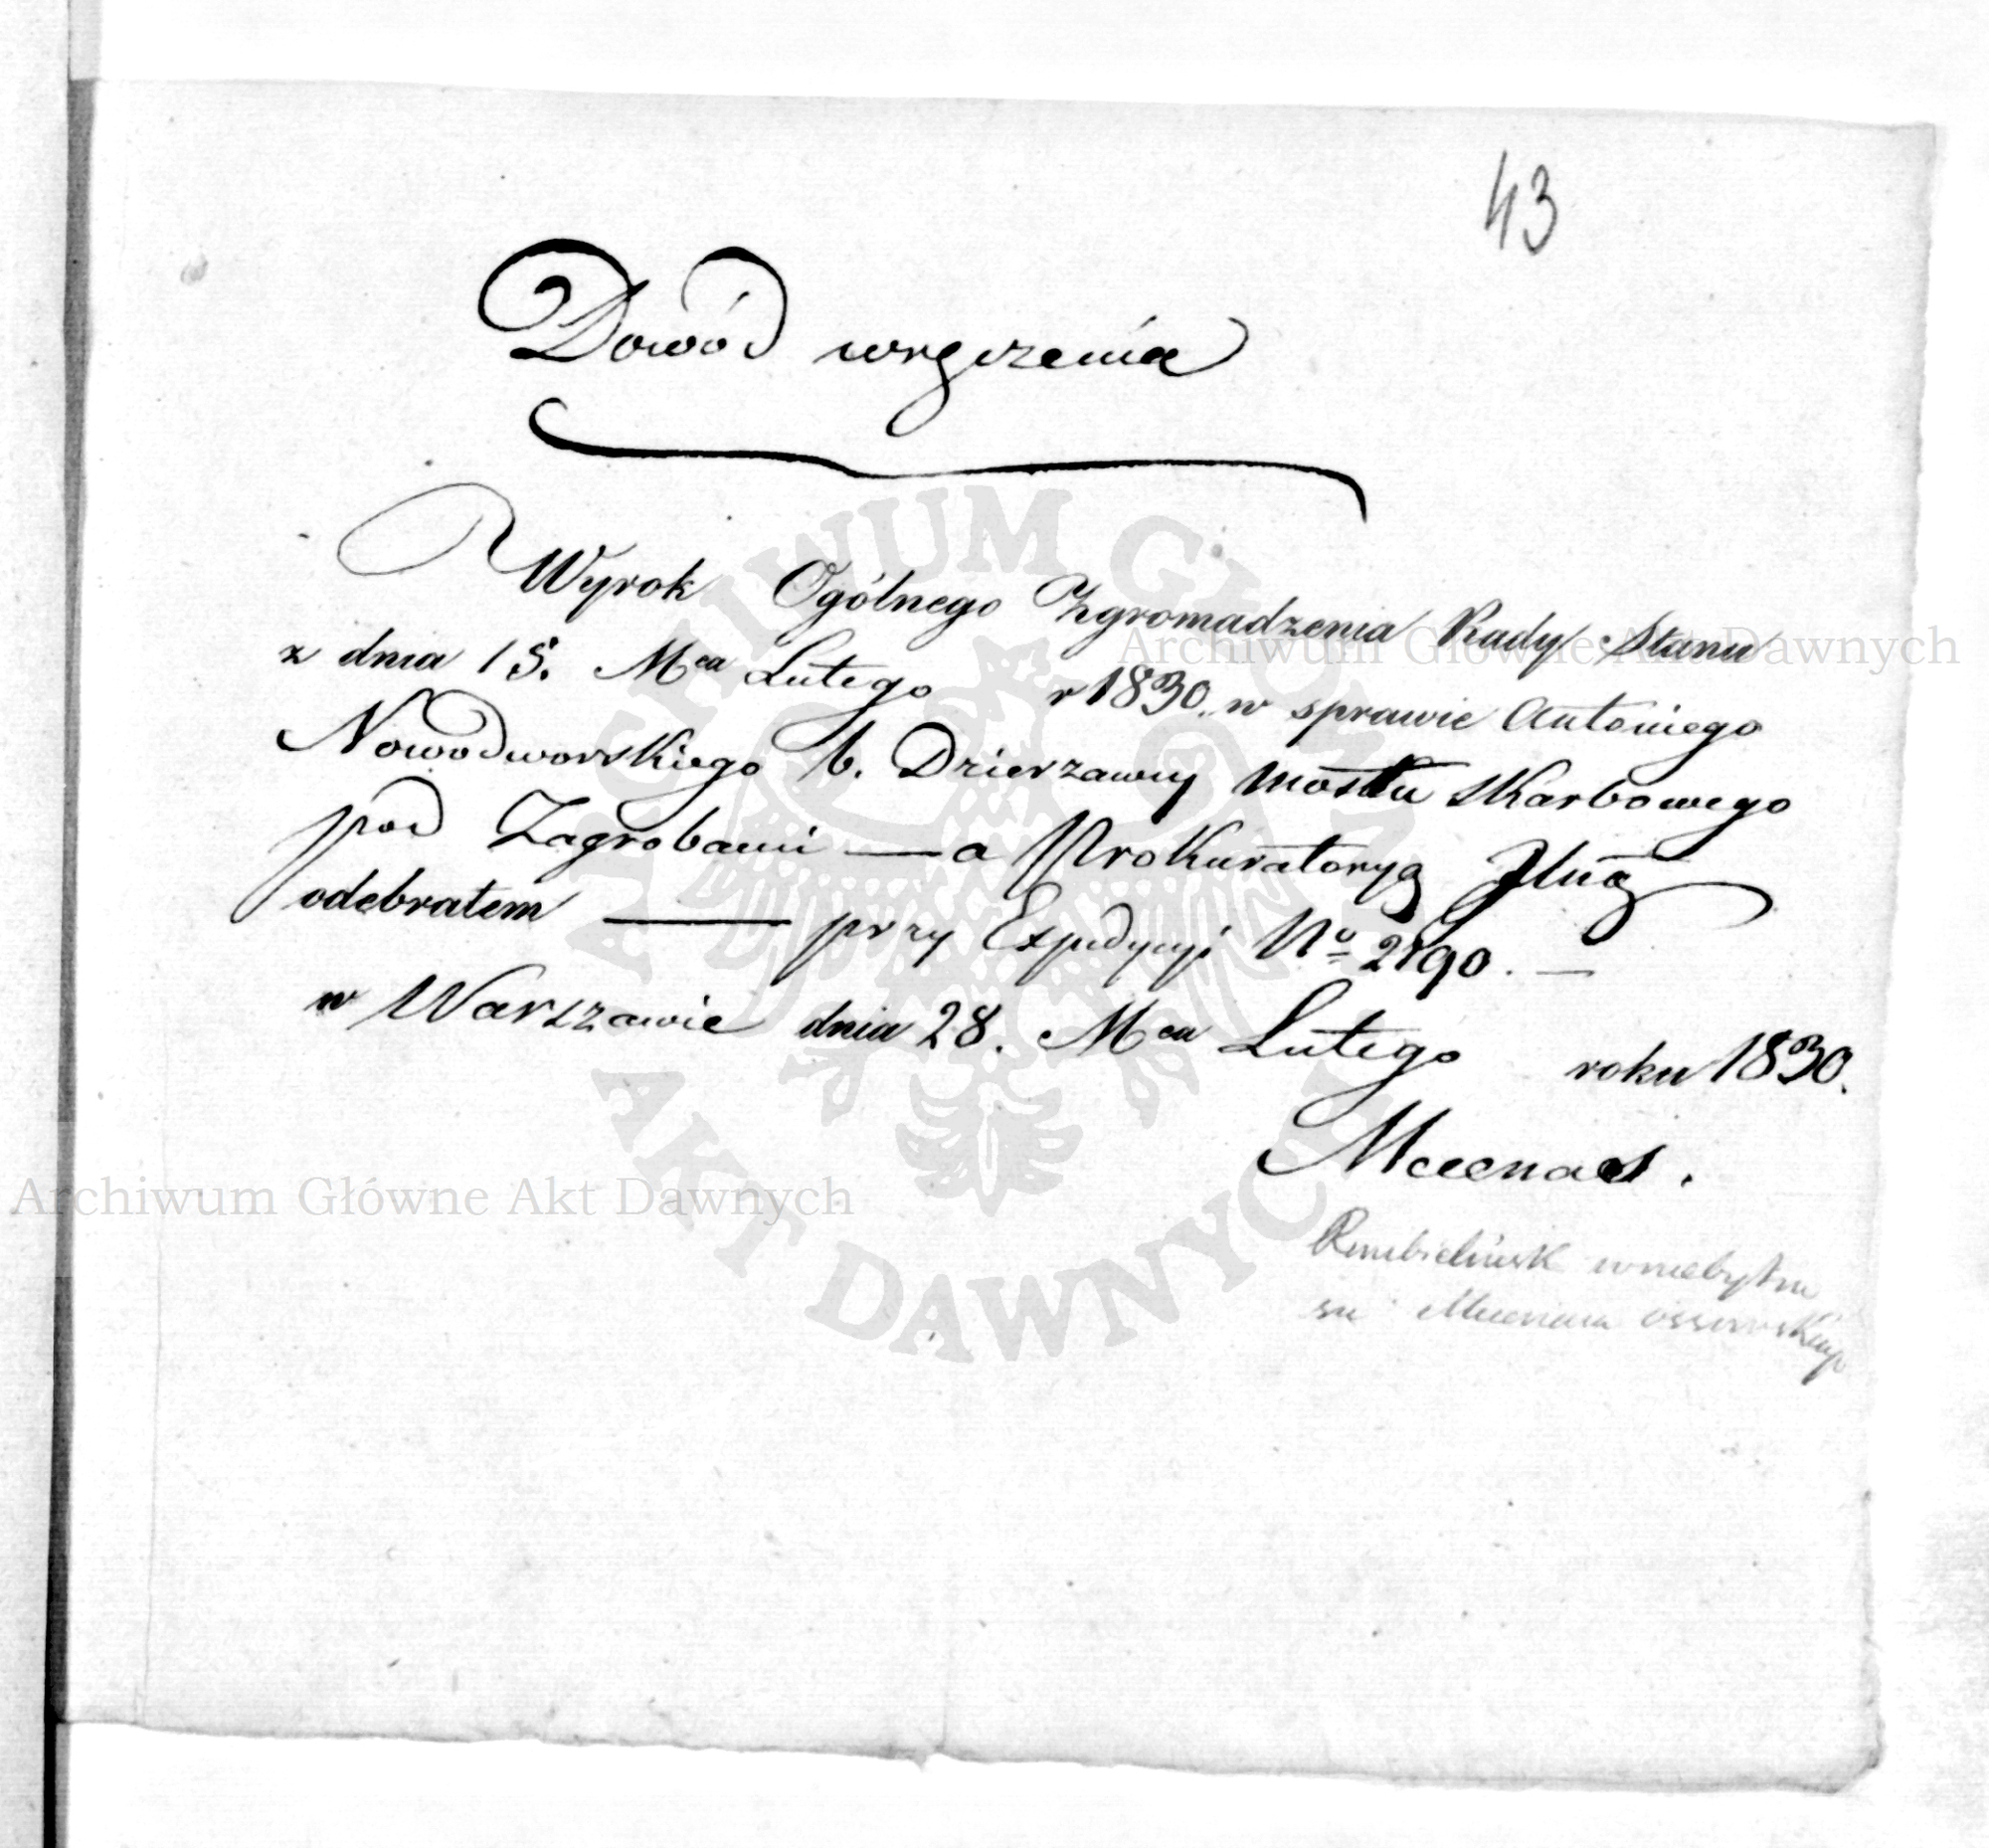 43
Dowód wręczenia
Wyrok Ogólnego Zgromadzenia Rady Stanu
z dnia 15. Mca Lutego r 1830. w sprawie Antoniego
Nowodworskiego b. Dzierzawcy mostu skarbowego
pod Zagrobami — a Prokuratoryą Jlną
odebrałem — przy Expedycyi No 2790. —
w Warszawie dnia 28. Mca Lutego roku 1830.
Mecenas.
Rembieliński w niebytno
sci Mecenasa Ossowskiego
Archiwum Główne Akt Dawnych
Archiwum Główne Akt Dawnych
ARCHIWUM GŁÓWNE
AKT DAWNYCH